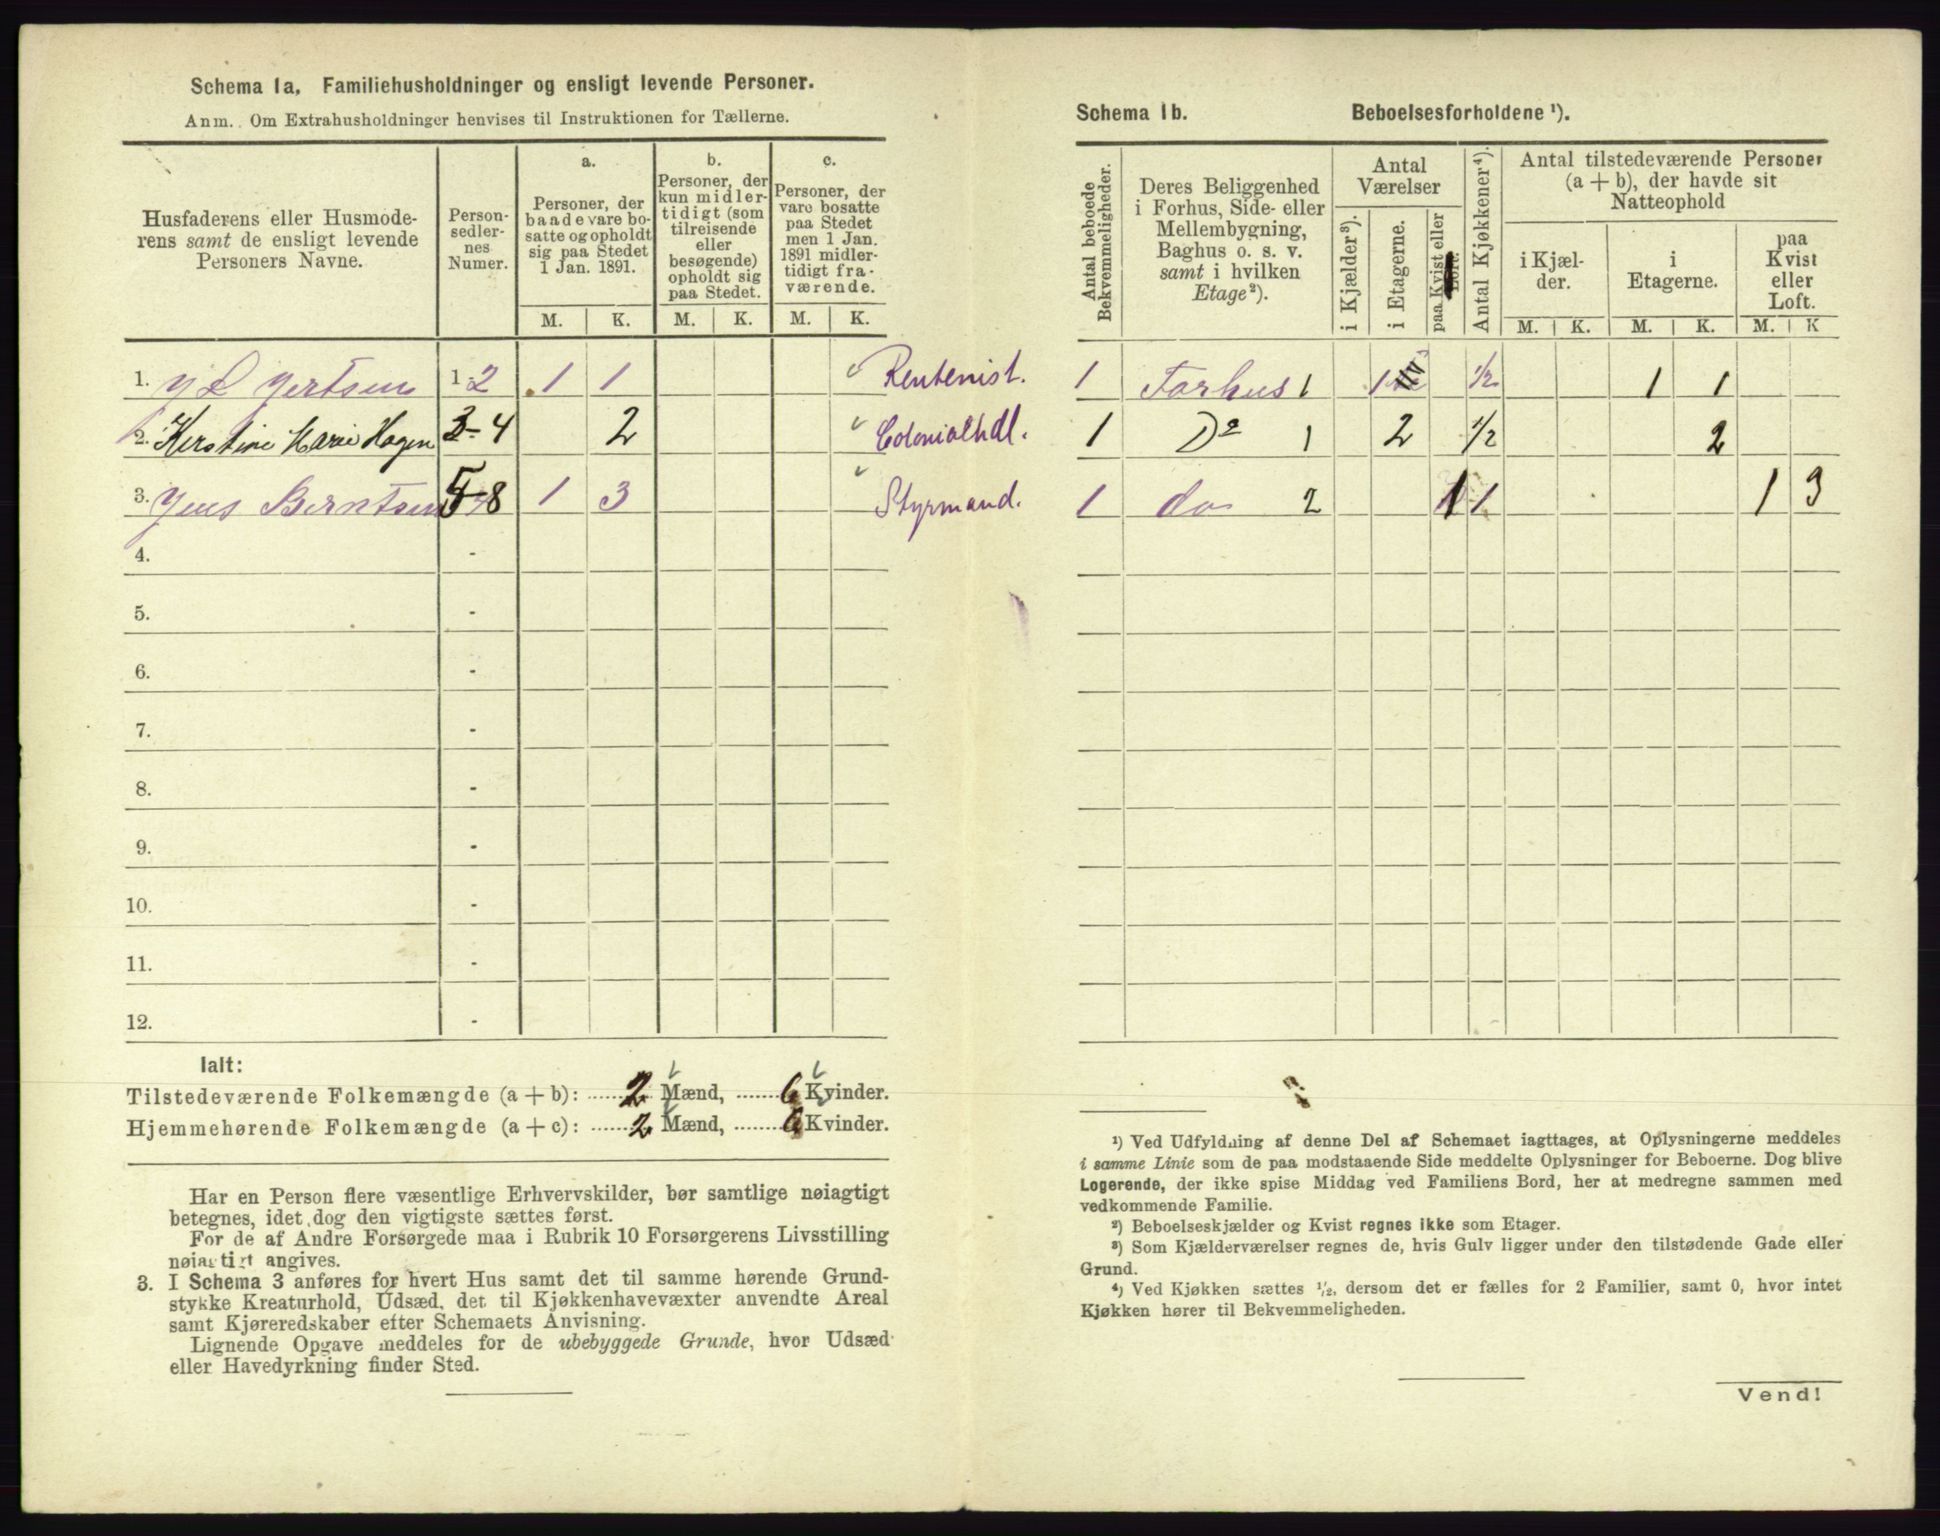 Schema 1a, Familiehusholdninger og ensligt levende Personer.
Anm. Om Extrahusholdninger henvises til Instruktionen for Tællerne.
Husfaderens eller Husmode-
rens samt de ensligt levende
Personers Navne.
Person-
sedler-
nes
Numer.
a.
Personer, der
baade vare bo-
satte og opholdt
sig paa Stedet
1 Jan. 1891.
b.
Personer, der
kun midler-
tidigt (som
tilreisende
eller
besøgende)
opholdt sig
paa Stedet.
c.
Personer, der
vare bosatte
paa Stedet
men 1 Jan.
1891 midler-
tidigt fra-
værende.
M. K. M. K. M. K.
1. 1-2 1 1 Rentenist.
2. Kerstine Marie Hagen 3-4 2 Colonialhdl.
3. Jens Berntsen 5-8 1 3 Styrmand.
4. -
5. -
6. -
7. -
8. -
9. -
10. -
11. -
12. -
Ialt:
Tilstedeværende Folkemængde (a + b): 2 Mænd, 6 Kvinder.
Hjemmehørende Folkemængde (a + c): 2 Mænd, 6 Kvinder.
Har en Person flere væsentlige Erhvervskilder, bør samtlige nøiagtigt
betegnes, idet dog den vigtigste sættes først.
For de af Andre Forsørgede maa i Rubrik 10 Forsørgerens Livsstilling
nøiagtigt angives.
3. I Schema 3 anføres for hvert Hus samt det til samme hørende Grund-
stykke Kreaturhold, Udsæd, det til Kjøkkenhavevæxter anvendte Areal
samt Kjøreredskaber efter Schemaets Anvisning.
Lignende Opgave meddeles for de ubebyggede Grunde, hvor Udsæd
eller Havedyrkning finder Sted.
Schema 1b. Beboelsesforholdene ¹).
Antal beboede
Bekvemmeligheder.
Deres Beliggenhed
i Forhus, Side- eller
Mellembygning,
Baghus o. s. v.
samt i hvilken
Etage²).
Antal
Værelser
i Kjælder³).
i Etagerne.
paa Kvist eller
Loft.
Antal Kjøkkener⁴).
Antal tilstedeværende Personer
(a + b), der havde sit
Natteophold
i Kjæl-
der.
i
Etagerne.
paa
Kvist
eller
Loft.
M. K. M. K. M. K
1 Forhus 1 1/2 1 1
1 Do 1 2 1/2 2
1 do 2 1 1 1 3
¹) Ved Udfyldning af denne Del af Schemaet iagttages, at Oplysningerne meddeles
i samme Linie som de paa modstaaende Side meddelte Oplysninger for Beboerne. Dog blive
Logerende, der ikke spise Middag ved Familiens Bord, her at medregne sammen med
vedkommende Familie.
²) Beboelseskjælder og Kvist regnes ikke som Etager.
³) Som Kjælderværelser regnes de, hvis Gulv ligger under den tilstødende Gade eller
Grund.
⁴) Ved Kjøkken sættes 1/2, dersom det er fælles for 2 Familier, samt 0, hvor intet
Kjøkken hører til Bekvemmeligheden.
Vend!